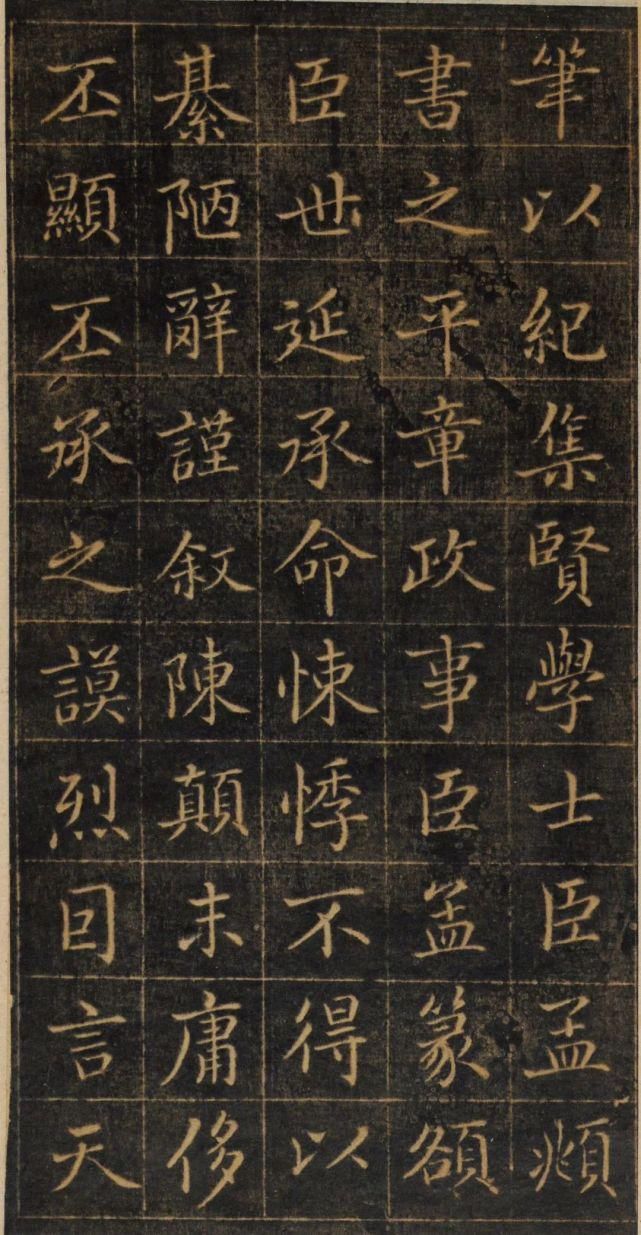 筆以紀集賢學士臣孟頫
書之平章政事臣孟篆額
臣世延承命悚悸不得以
綦陋辭謹敘陳顛末庸侈
丕顯丕承之謨烈囙言天